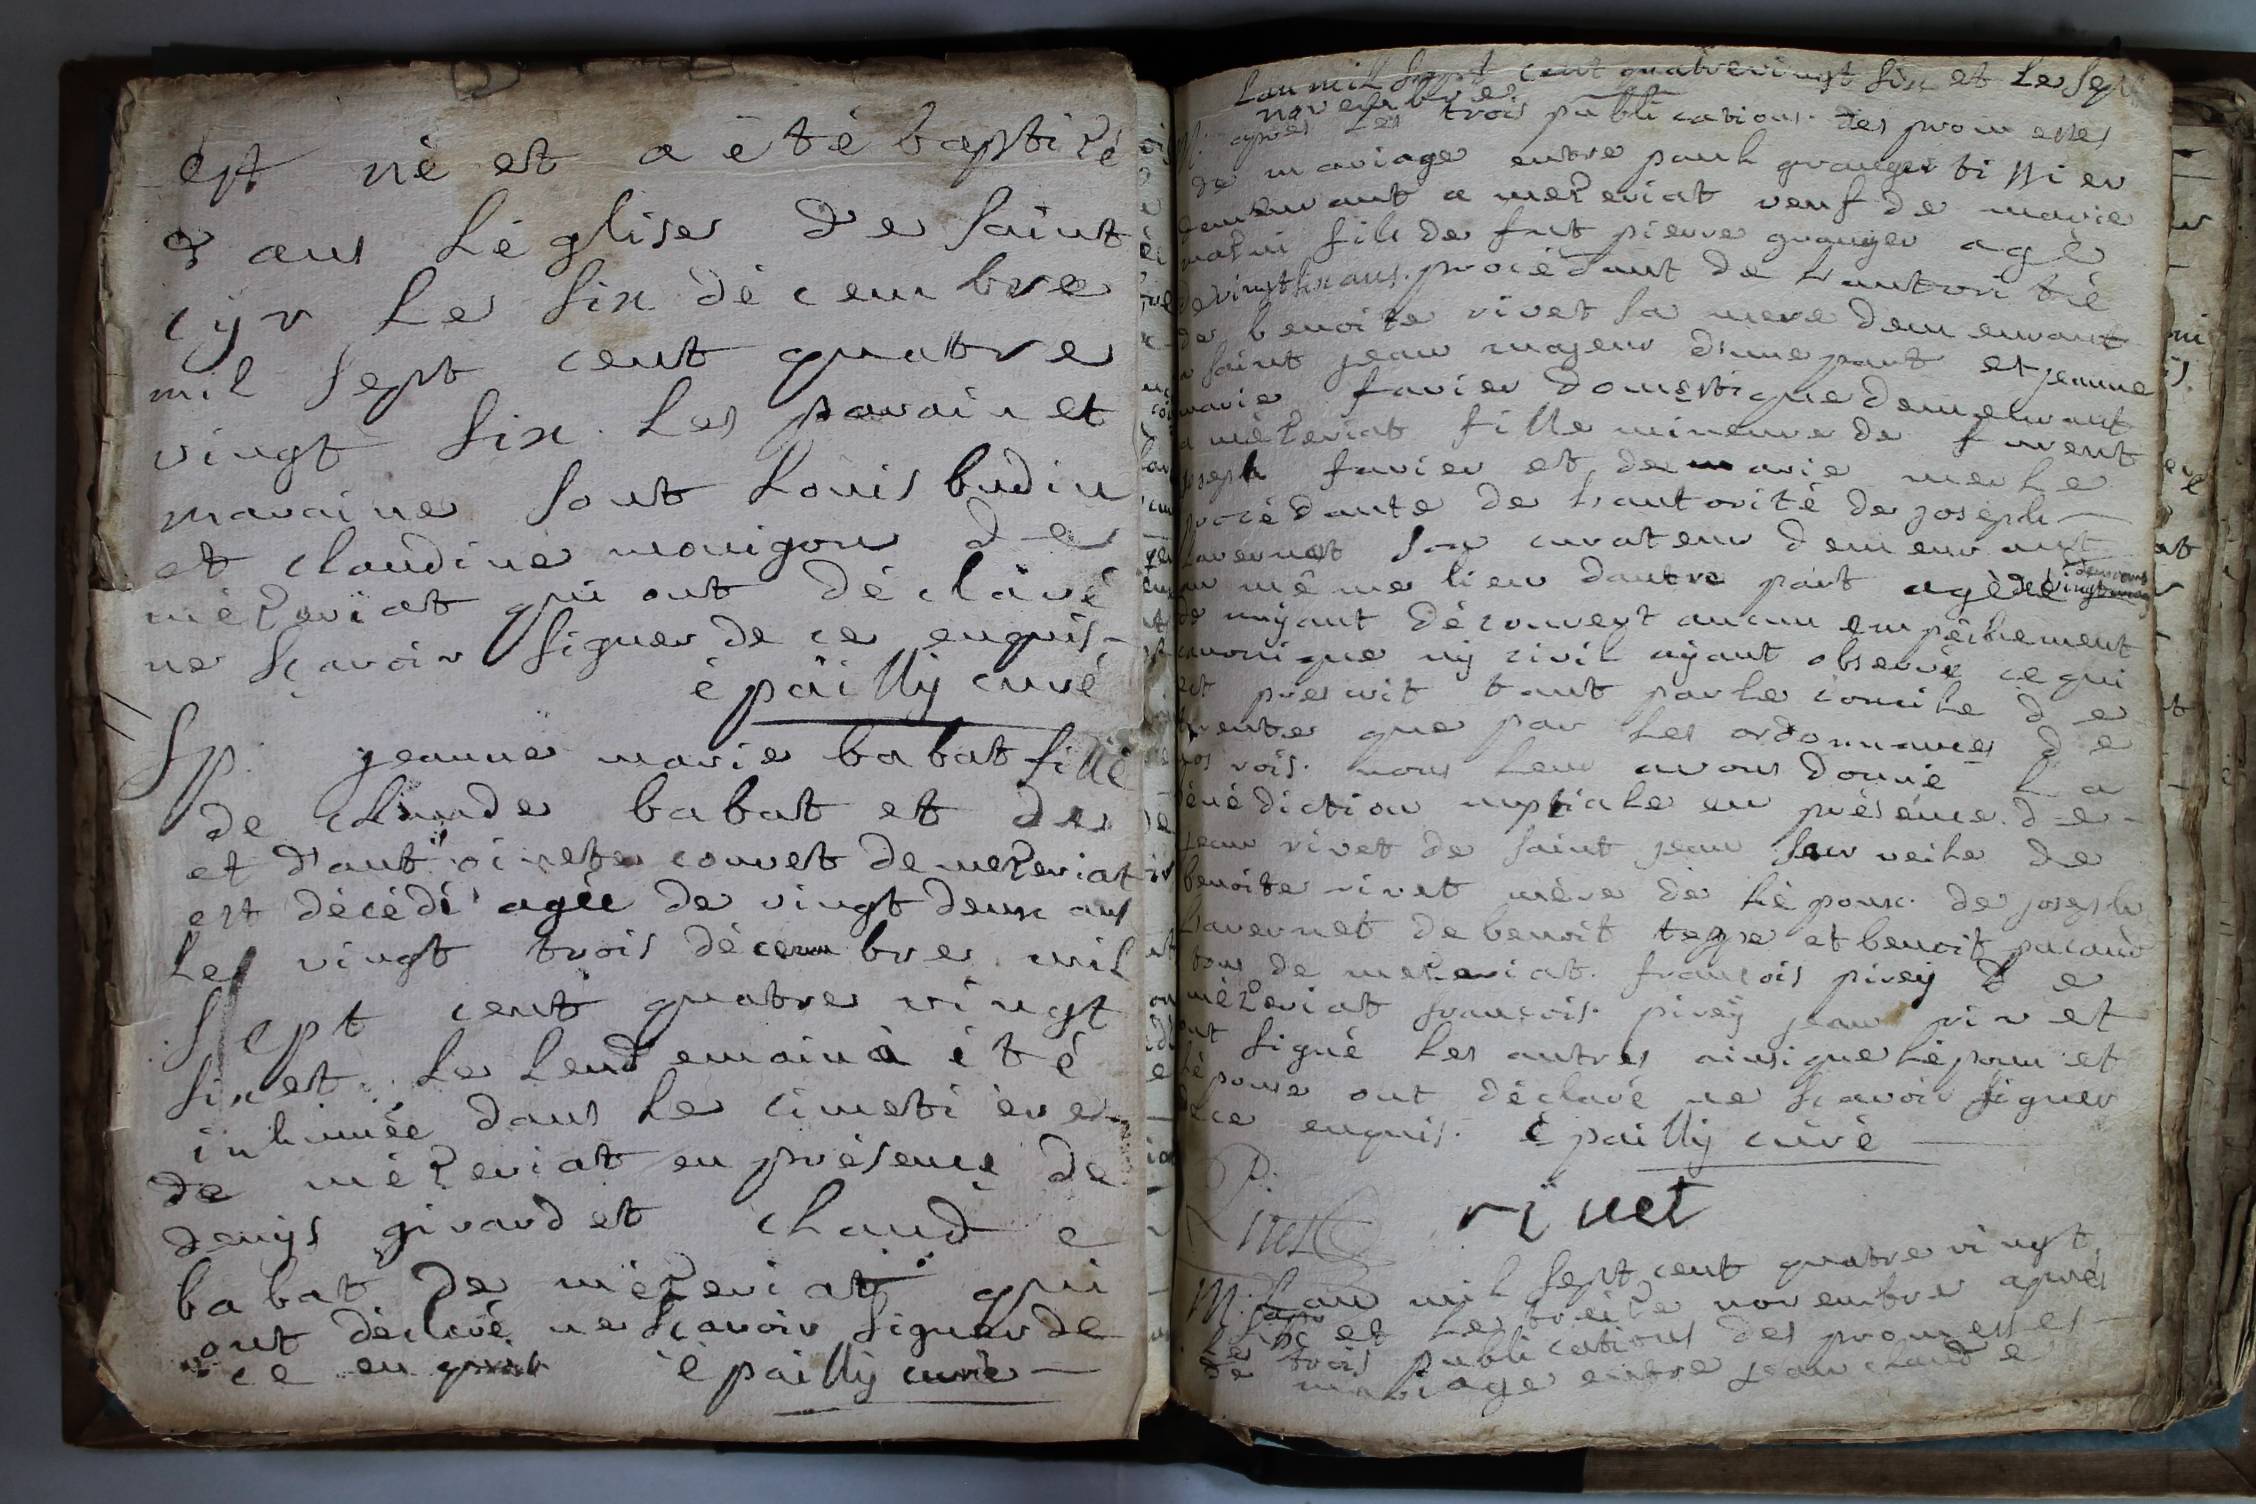 est né et a été baptizé
dans Léglise de saint
cyr Le six décembre
mil sept cent quatre
vingt six. Les parain et
maraine sont Louis budin
et claudine monigon de
mézeriat qui ont déclaré
ne sçavoir signer de ce enquis-
épailly curé
Sp. jeanne marie babat fille
de claude babat et de
et d'antoinete convert de mezeriat
est décédé agée de vingt deux ans
Le vingt trois décembre mil
sept cent quatre vingt
six et Le Lendemain a été
inhumée dans Le cimetière
de mézeriat en présence de
denys girard et claude
babat de mézeriat qui
ont déclaré ne sçavoir signer de
ce enquis épailly curé
Lan mil sept cent quatrevingt six et Le sept
novembre
M. apres Les trois publications des promesses
de mariage entre paul granger tissier
demeurant a mezeriat veuf de marie
fils de fut pierre granger agé
de vingt six ans. procédant de Lautorité
de benoite rivet sa mere demeurant
a saint jean majeur d'une part et jeanne
marie favier domestique demeurant
a mézeriat fille mineure de furent
joseph favier et de marie merle
procédante de Lautorité de joseph
Lavernet son curateur demeurant
au même lieu dautre part agée de
ne ayant découvert aucun empéchement
canonique ny civil ayant observé ce qui
est prescrit tant par Le concile de
trente que par Les ordonnances de
nos rois. nous Leur avons donné La
bénédiction nuptiale en présence de
jean rivet de saint jean sur veile de
benoite rivet mère de Lépoux. de joseph
Lavernet de benoit teppe et benoit pacaud
tous de mezeriat. françois pirey de
mézeriat françois. pirey jean rivet
ont signé Les autres ainsi que Lépoux et
Lépouse ont déclaré ne sçavoir signer
de ce enquis. épailly curé
rivet
M. Lan mil sept cent quatre vingt
six et Le treize novembre après
Les trois publications des promesses
de mariage entre jean claude